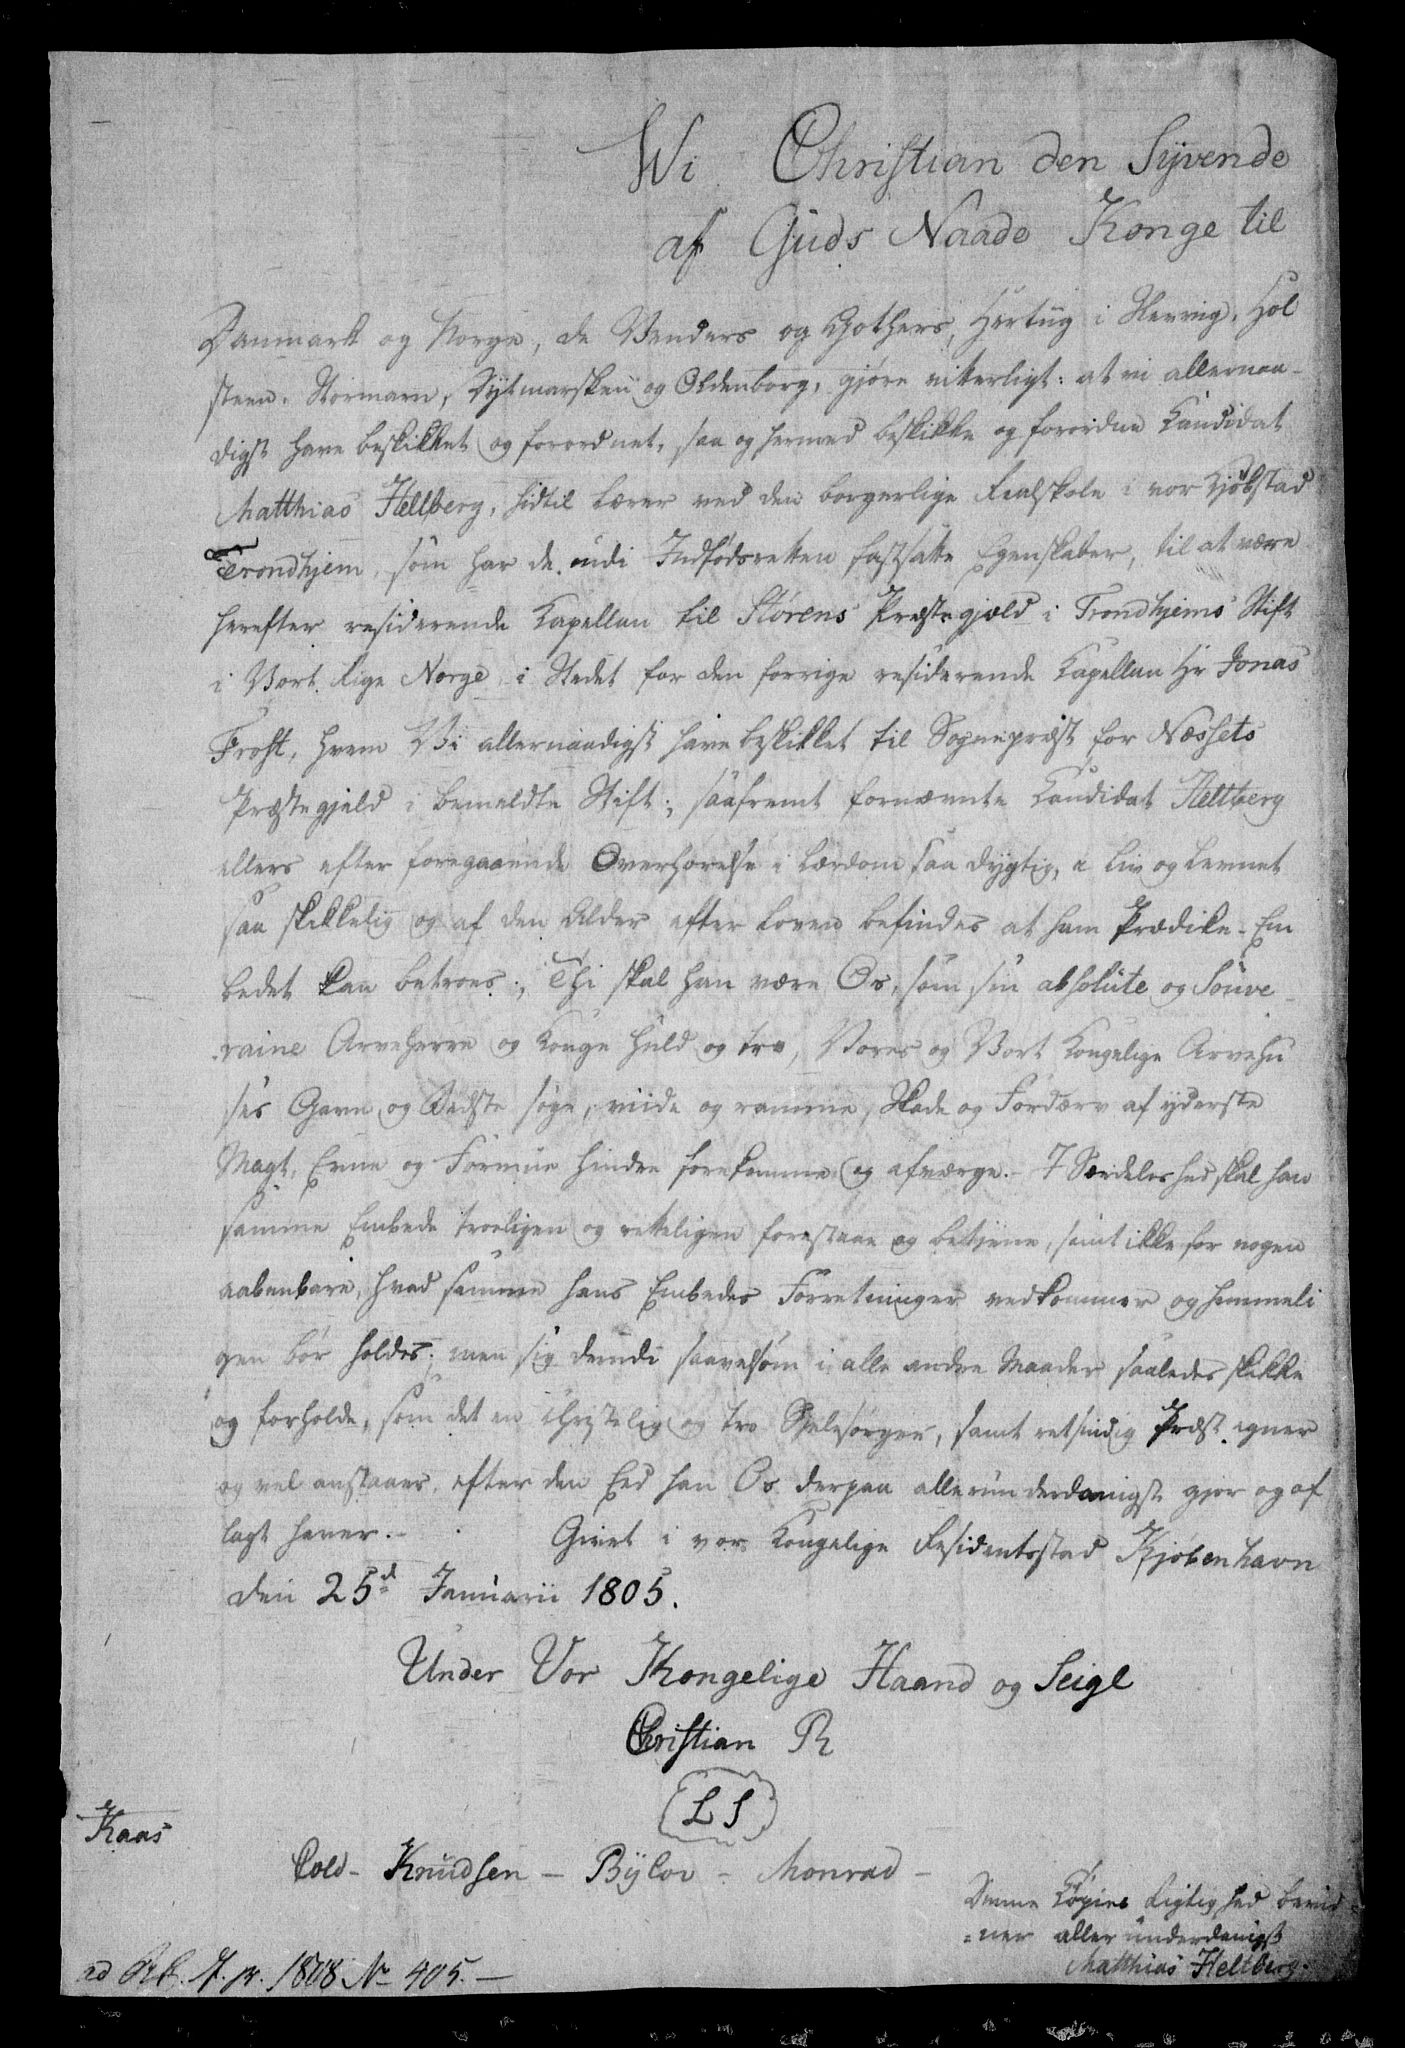 Wi Christian den Syvende
af Guds Naade Konge til
Danmark og Norge, de Venders og Gothers, Hertug i Slesvig, Hol
steen, Stormarn, Dytmarsken og Oldenborg, gjøre vitterligt: at vi allernaa-
digst have beskikket og forordnet, saa og hermed beskikke og forordne Kandidat
Matthias Heltberg, hidtil Lærer ved den borgerlige Realskole i vor Kjøbstad
Trondhjem, som har de udi Indfødsretten fastsatte Egenskaber, til at være
herefter residerende Kapellan til Størens Præstegjæld i Trondhjems Stift
i Vort Rige Norge i Stedet for den forrige residerende Kapellan Hr Jonas
Frost, hvem Vi allernaadigst have beskikket til Sognepræst for Næssets
Præstegjeld i bemeldte Stift; saafremt fornævnte Kandidat Heltberg
ellers efter foregaaende Overhørelse i Lærdom saa dygtig, i Liv og Levnet
saa skikkelig og af den Alder efter Loven befindes at ham Prædike-Em
bedet kan betroes; Thi skal han være Os, som sin absolute og Souve-
raine Arveherre og Konge huld og tro, Vores og Vort Kongelige Arvehu
ses Gavn og Bedste søge, vide og ramme, Skade og Fordærv af yderste
Magt, Evne og Formue hindre forekomme og afværge. I Særdeleshed skal han
samme Embede troeligen og retteligen forestaae og betjene, samt ikke for nogen
aabenbare, hvad samme hans Embedes Forretninger vedkommer og hemmeli
gen bør holdes; men sig derudi saavelsom i alle andre Maader saaledes skikke
og forholde, som det en christelig og tro Sjelesørger, samt retsindig Præst egner
og vel anstaaer, efter den Eed han Os derpaa allerunderdanigst gjør og af
lagt haver. - Givet i vor Kongelige Residentsstad Kjøbenhavn
den 25d Januarii 1805.
Under Vor Kongelige Haand og Seigl
Christian R
L S
Kaas
Cold - Knudsen - Bylov - Monrad -
Denne Copies Rigtighed bevid=
=ner allerunderdanigst
Matthias Heltberg.
ad Rf. J. pr. 1808 No 405. -